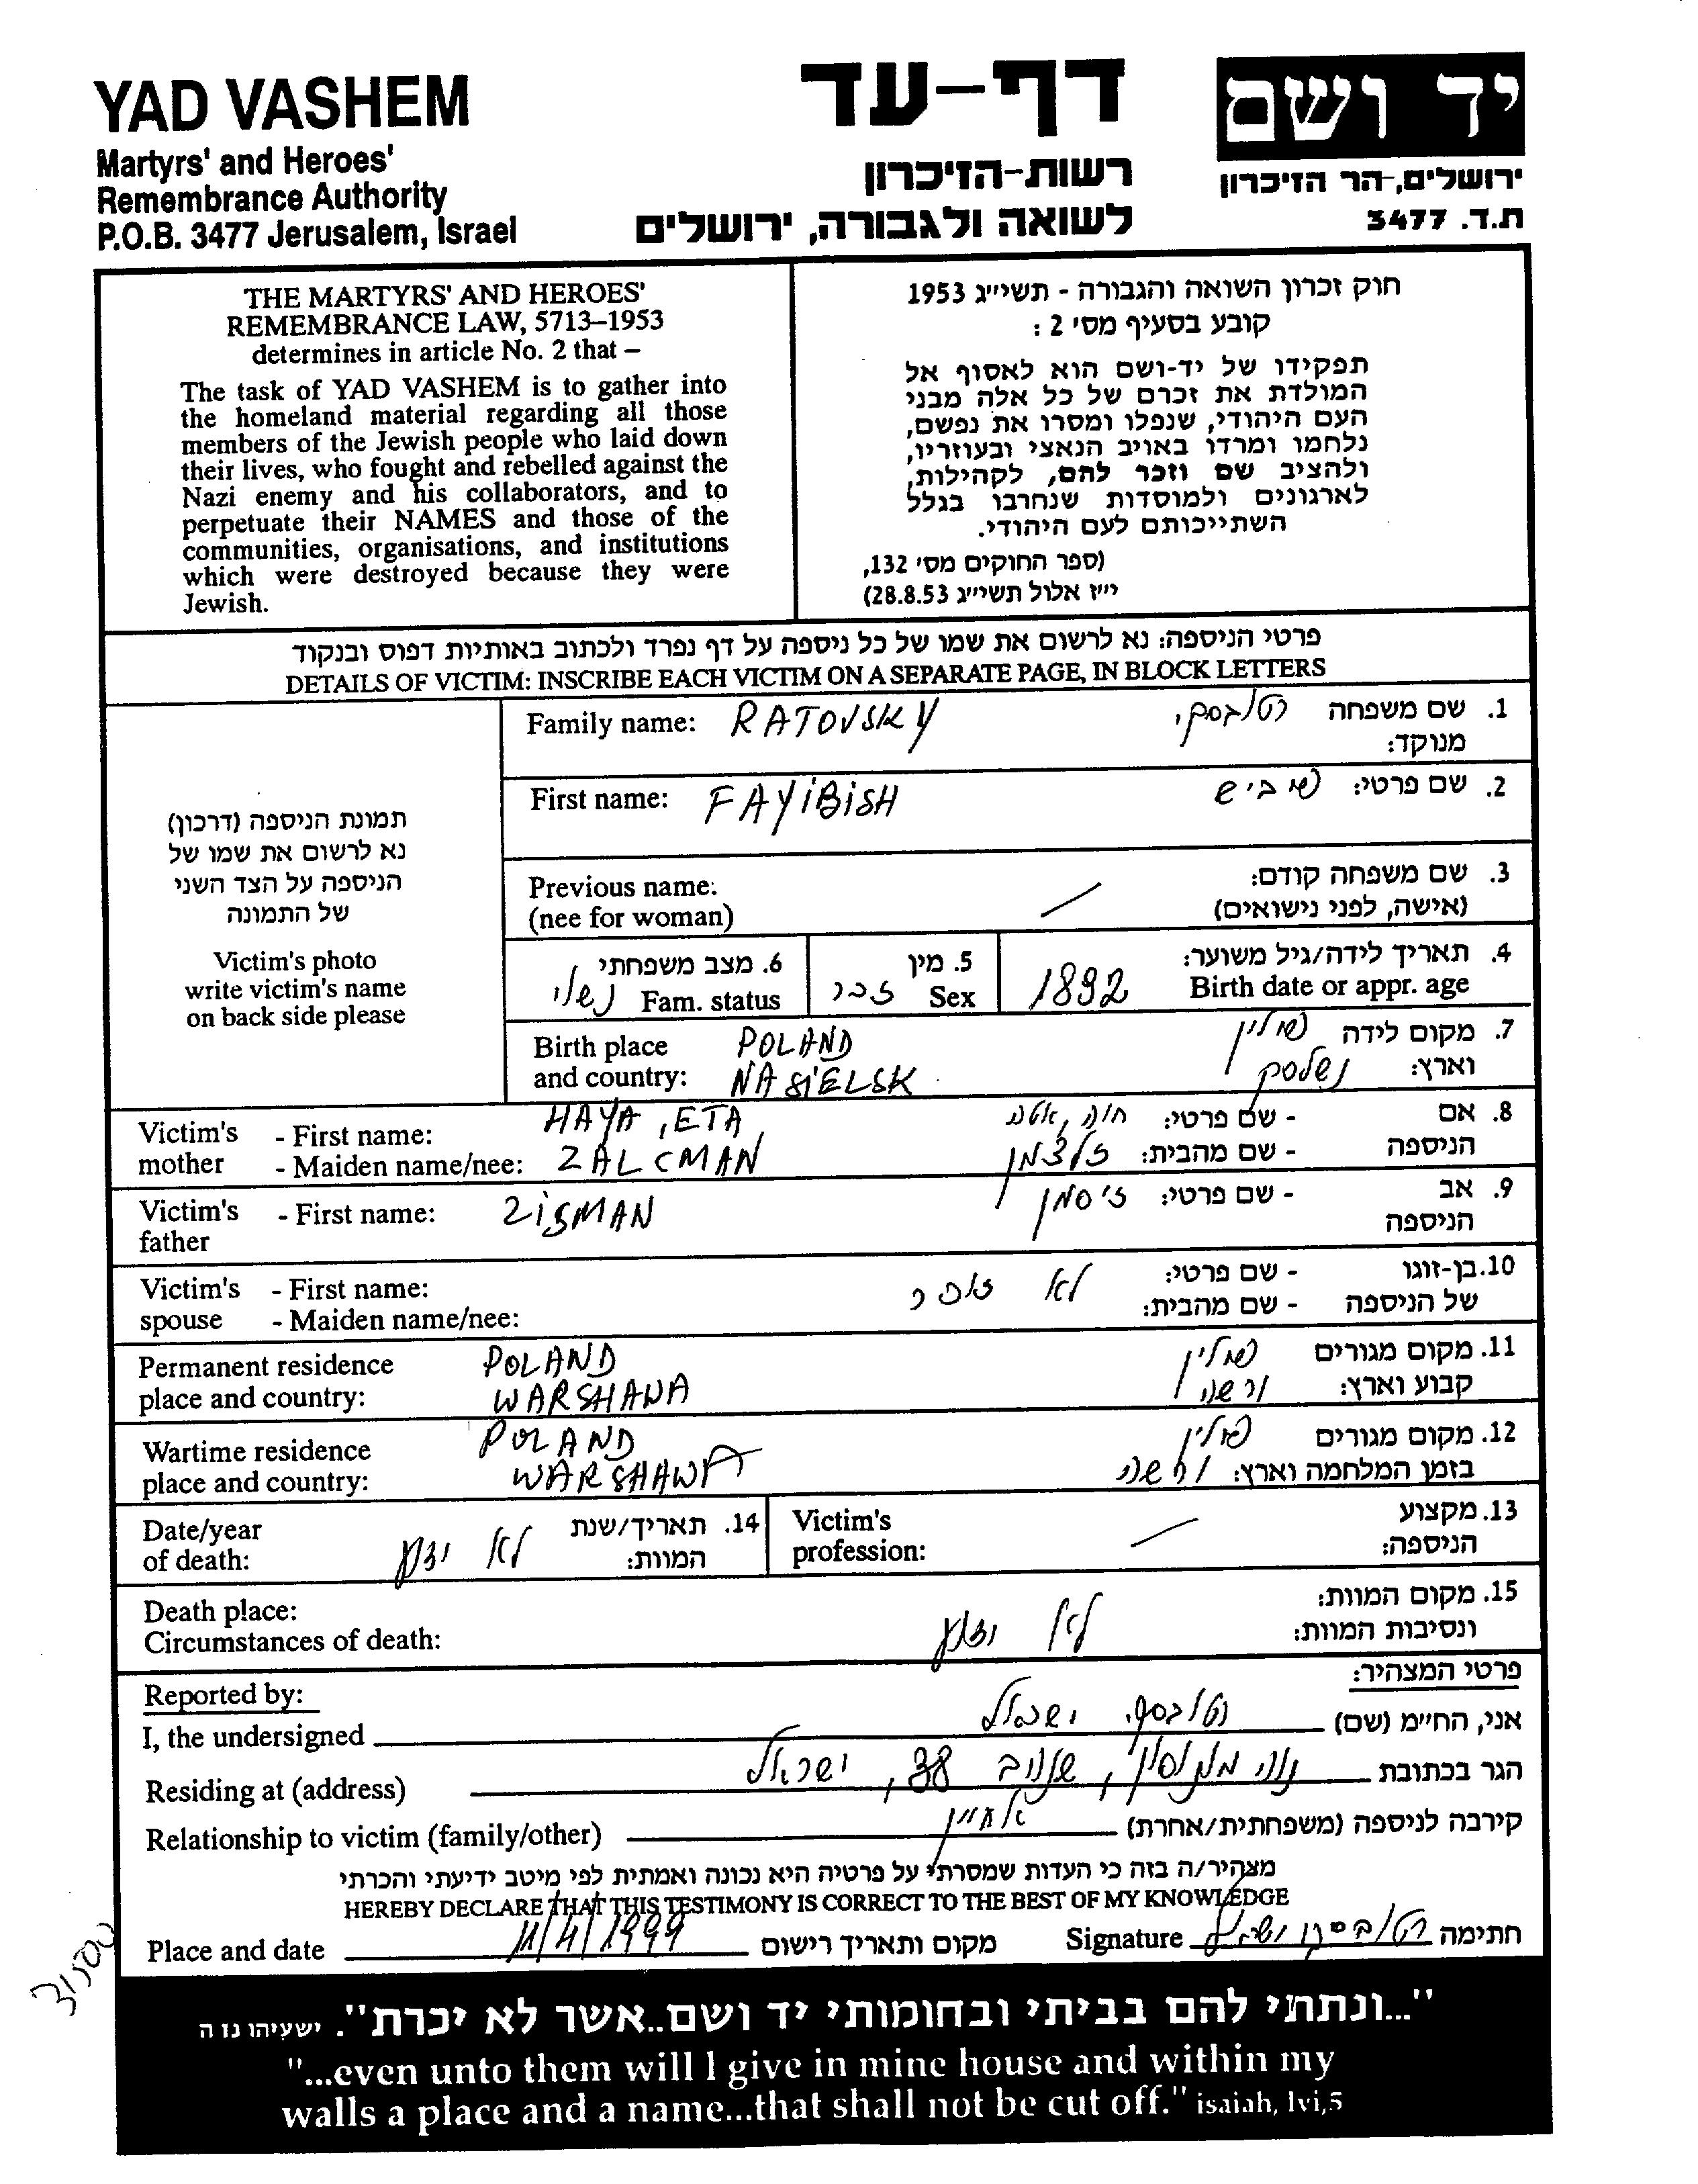 YAD VASHEM
Martyrs' and Heroes'
Remembrance Authority
P.O.B. 3477 Jerusalem, Israel
דף-עד
רשות-הזיכרון
לשואה ולגבורה, ירושלים
יד ושם
ירושלים,-הר הזיכרון
ת.ד. 3477
THE MARTYRS' AND HEROES'
REMEMBRANCE LAW, 5713–1953
determines in article No. 2 that –
The task of YAD VASHEM is to gather into
the homeland material regarding all those
members of the Jewish people who laid down
their lives, who fought and rebelled against the
Nazi enemy and his collaborators, and to
perpetuate their NAMES and those of the
communities, organisations, and institutions
which were destroyed because they were
Jewish.
חוק זכרון השואה והגבורה - תשי״ג 1953
קובע בסעיף מס׳ 2 :
תפקידו של יד-ושם הוא לאסוף אל
המולדת את זכרם של כל אלה מבני
העם היהודי, שנפלו ומסרו את נפשם,
נלחמו ומרדו באויב הנאצי ובעוזריו,
ולהציב שם וזכר להם, לקהילות,
לארגונים ולמוסדות שנחרבו בגלל
השתייכותם לעם היהודי.
(ספר החוקים מס׳ 132,
י״ז אלול תשי״ג 28.8.53)
פרטי הניספה: נא לרשום את שמו של כל ניספה על דף נפרד ולכתוב באותיות דפוס ובנקוד
DETAILS OF VICTIM: INSCRIBE EACH VICTIM ON A SEPARATE PAGE, IN BLOCK LETTERS
תמונת הניספה (דרכון)
נא לרשום את שמו של
הניספה על הצד השני
של התמונה
Victim's photo
write victim's name
on back side please
Family name: RATOVSKY
1. שם משפחה רטובסקי
מנוקד:
First name: FAYIBISH
2. שם פרטי: פייביש
Previous name:
(nee for woman)
3. שם משפחה קודם:
(אישה, לפני נישואים)
4. תאריך לידה/גיל משוער:
Birth date or appr. age 1892
5. מין
Sex זכר
6. מצב משפחתי
Fam. status נשוי
Birth place POLAND
and country: NASIELSK
7. מקום לידה פולין
וארץ: נשלסק
Victim's - First name: HAYA, ETA
mother - Maiden name/nee: ZALCMAN
8. אם - שם פרטי: חיה, אטה
הניספה - שם מהבית: זלצמן
Victim's - First name: ZISMAN
father
9. אב - שם פרטי: זיסמן
הניספה
Victim's - First name:
spouse - Maiden name/nee:
10. בן-זוגו - שם פרטי:
של הניספה - שם מהבית:
לא זוכר
Permanent residence POLAND
place and country: WARSHAWA
11. מקום מגורים פולין
קבוע וארץ: ורשה
Wartime residence POLAND
place and country: WARSHAWA
12. מקום מגורים פולין
בזמן המלחמה וארץ: ורשה
Date/year
of death:
14. תאריך/שנת
המוות: לא ידוע
Victim's
profession:
13. מקצוע
הניספה:
Death place:
Circumstances of death:
15. מקום המוות:
ונסיבות המוות: לא ידוע
Reported by:
פרטי המצהיר:
I, the undersigned
אני, החי״מ (שם) רטובסקי ישראל
Residing at (address)
הגר בכתובת 38, ישראל
Relationship to victim (family/other)
קירבה לניספה (משפחתית/אחרת) אחיין
מצהיר/ה בזה כי העדות שמסרתי על פרטיה היא נכונה ואמתית לפי מיטב ידיעתי והכרתי
HEREBY DECLARE THAT THIS TESTIMONY IS CORRECT TO THE BEST OF MY KNOWLEDGE
Place and date 11/4/1999 מקום ותאריך רישום
Signature רטובסקי ישראל חתימה
"...ונתתי להם בביתי ובחומותי יד ושם..אשר לא יכרת". ישעיהו נו ה
"...even unto them will I give in mine house and within my
walls a place and a name...that shall not be cut off." isaiah, lvi,5